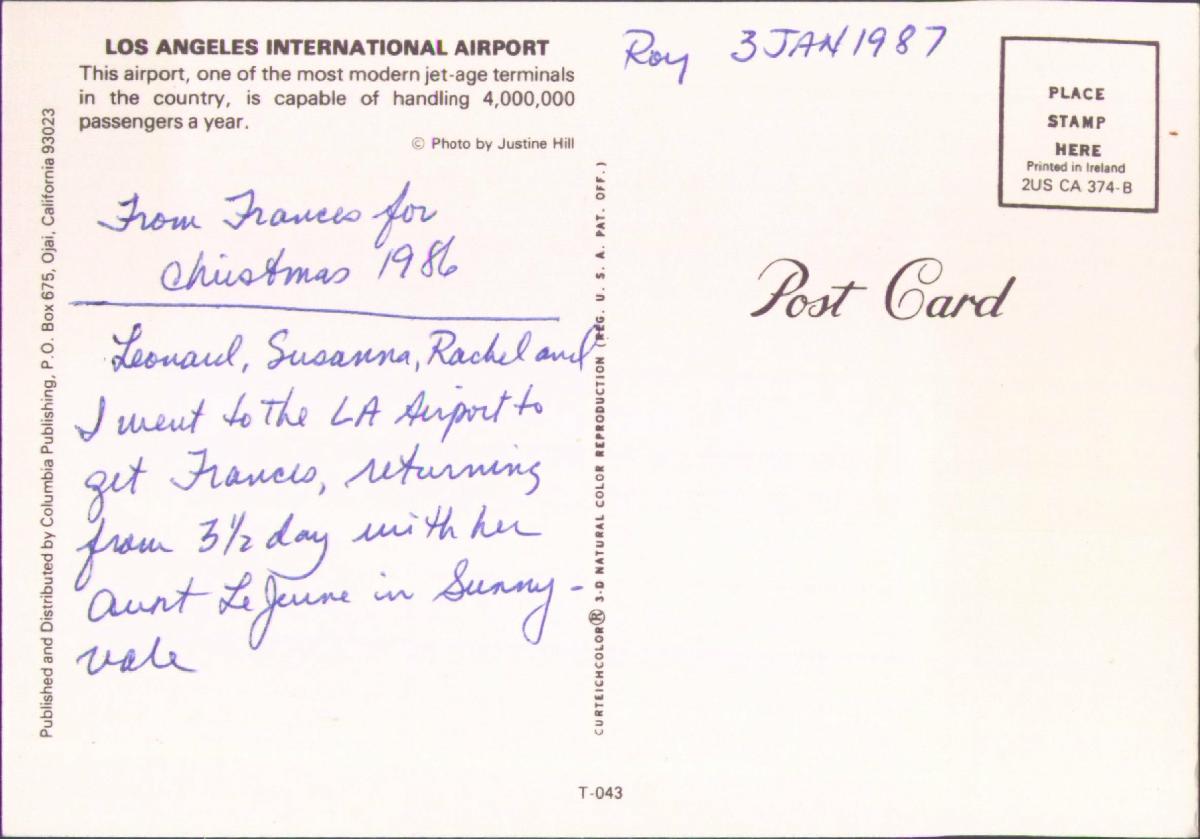 LOS ANGELES INTERNATIONAL AIRPORT
This airport, one of the most modern jet-age terminals
in the country, is capable of handling 4,000,000
passengers a year.
© Photo by Justine Hill
From Frances for
Christmas 1986
Leonard, Susanna, Rachel and
I went to the LA Airport to
get Frances, returning
from 3½ day with her
Aunt LeJeune in Sunny-
vale
Published and Distributed by Columbia Publishing, P.O. Box 675, Ojai, California 93023
CURTEICHCOLOR® 3-D NATURAL COLOR REPRODUCTION (REG. U. S. A. PAT. OFF.)
Roy 3 JAN 1987
PLACE
STAMP
HERE
Printed in Ireland
2US CA 374-B
Post Card
T-043